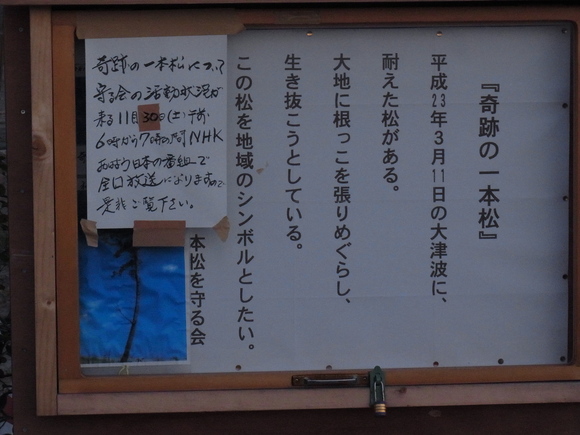 『奇跡の一本松』
平成23年3月11日の大津波に、
耐えた松がある。
大地に根っこを張りめぐらし、
生き抜こうとしている。
この松を地域のシンボルとしたい。
本松を守る会
奇跡の一本松について
守る会の活動状況が
来る11月30日(土)午前
6時から7時の間NHK
おはよう日本の番組で
全国放送になりますので
是非ご覧下さい。